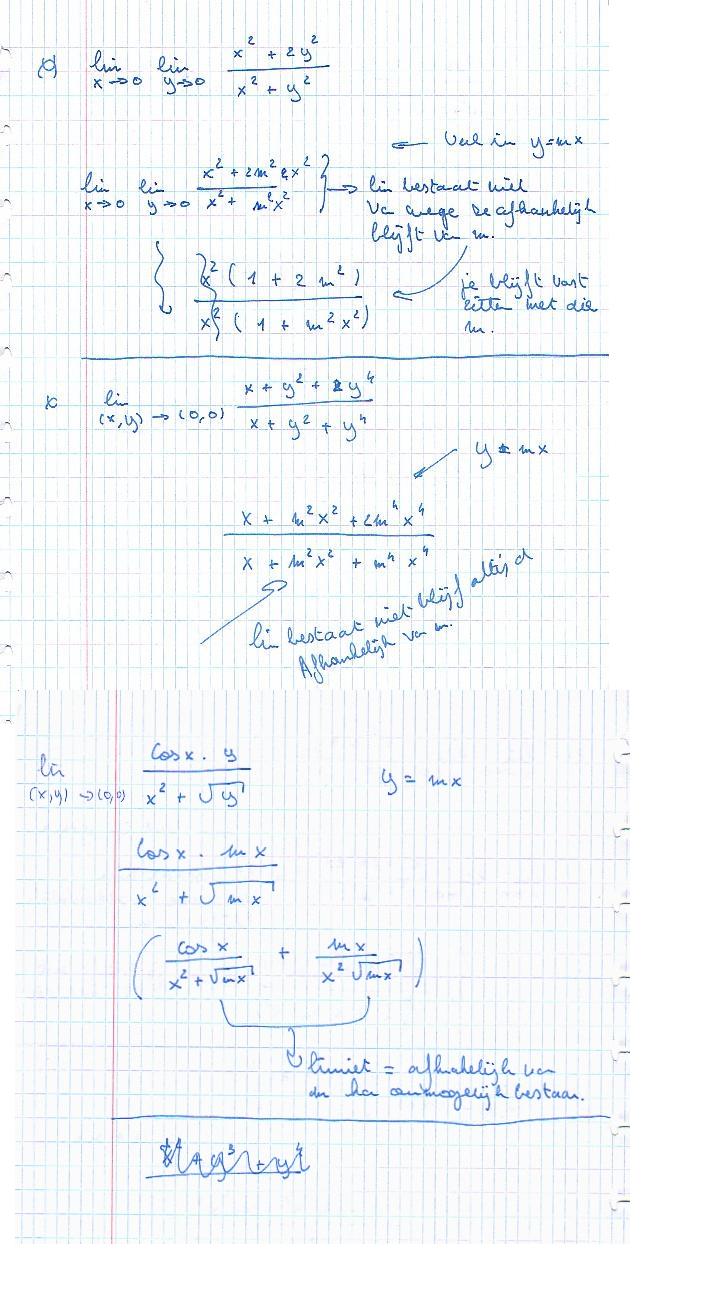 lim x→0 lim y→0 (x² + 2y²) / (x² + y²)
← Vul in y=mx
lim x→0 lim y→0 (x² + 2m²x²) / (x² + m²x²) } → lim bestaat niet
Van wege ze afhankelijk
blijft van m.
x² (1 + 2m²) / x² (1 + m²x²)
je blijft vast
zitten met die
m.
lim (x,y) → (0,0) (x + y² + 2y⁴) / (x + y² + y⁴)
y = mx
(x + m²x² + 2m⁴x⁴) / (x + m²x² + m⁴x⁴)
lim bestaat niet blijf altijd
Afhankelijk van m.
lim (x,y) → (0,0) (cos x . y) / (x² + √y)
y = mx
(cos x . mx) / (x² + √mx)
( cos x / (x² + √mx) + mx / (x² √mx) )
limiet = afhakelijk van
dus kan onmogelijk bestaan.